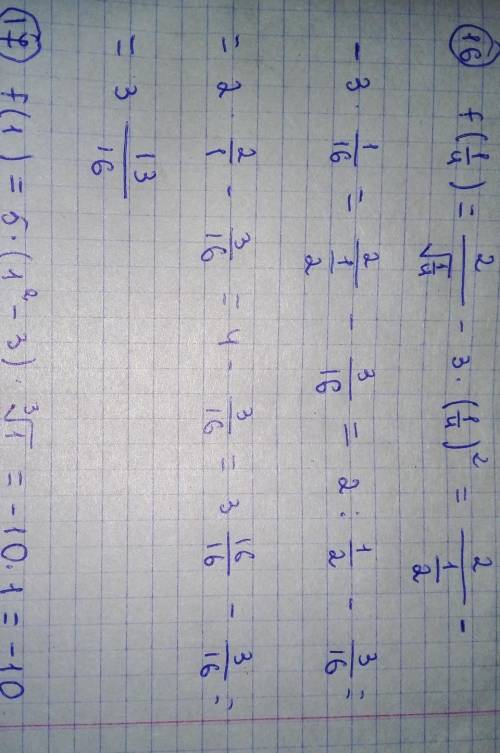 16) f(1/4) = 2/√(1/4) - 3·(1/4)² = 2/(1/2) -
- 3·1/16 = 2/(1/2) - 3/16 = 2 : 1/2 - 3/16 =
= 2·2/1 - 3/16 = 4 - 3/16 = 3 16/16 - 3/16 =
= 3 13/16
17) f(1) = 5·(1² - 3)·³√1 = -10·1 = -10